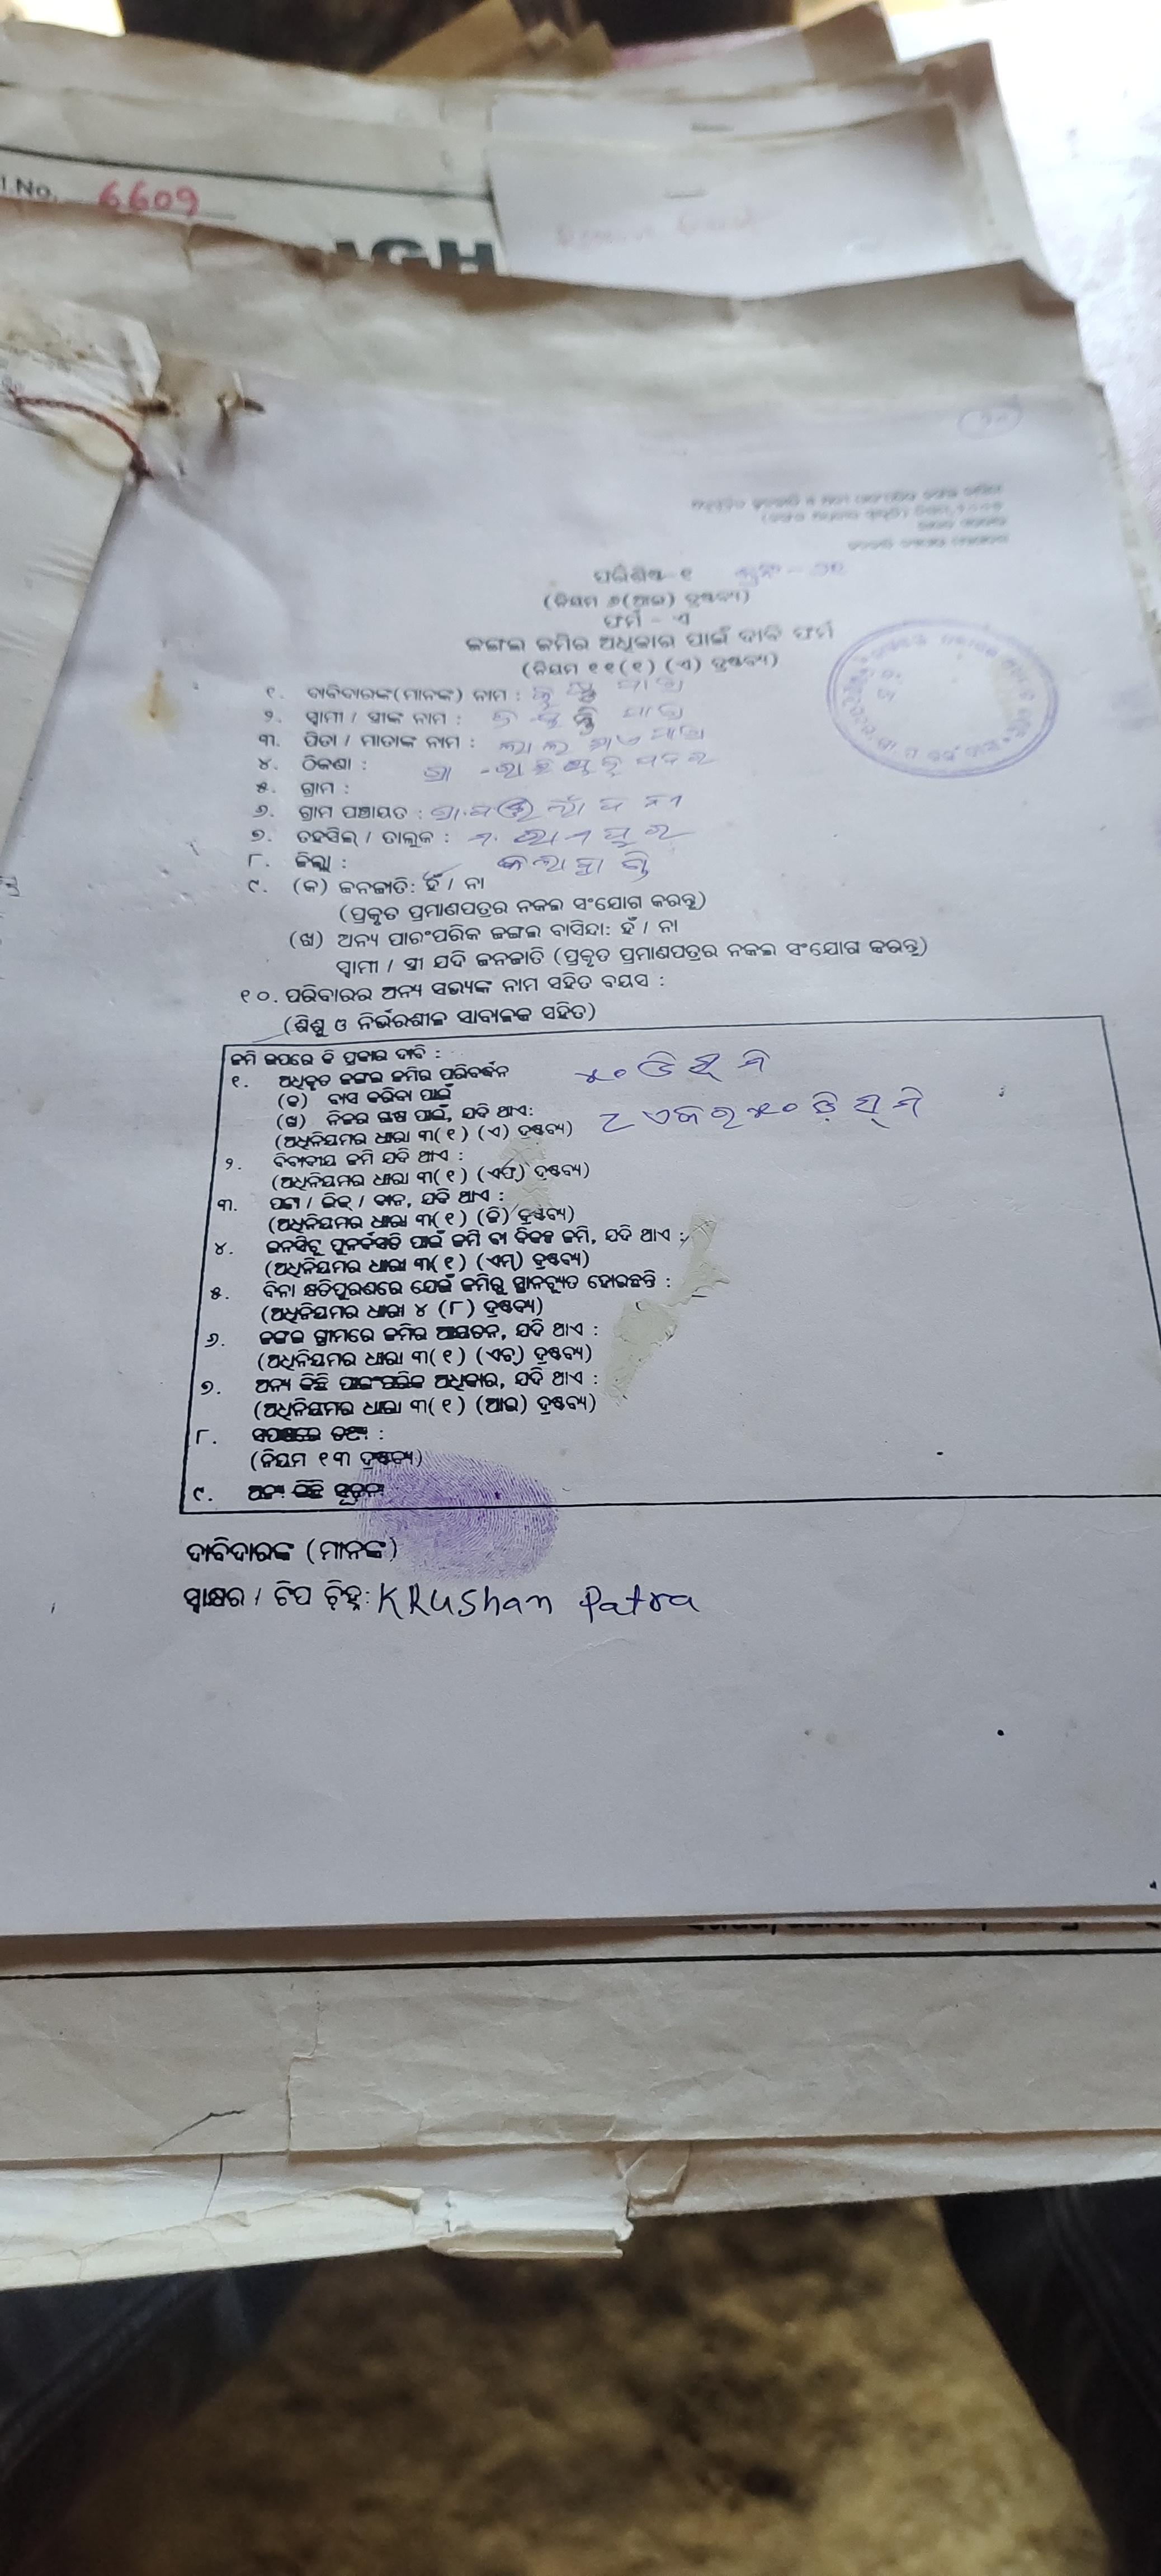 l.No. 6609
NGH
ପରିଶିଷ୍ଟ-୧
(ନିୟମ ୬(ଆଇ) ଦ୍ରଷ୍ଟବ୍ୟ)
ଫର୍ମ - ଏ
ଜଙ୍ଗଲ ଜମିର ଅଧିକାର ପାଇଁ ଦାବି ଫର୍ମ
(ନିୟମ ୧୧(୧) (ଏ) ଦ୍ରଷ୍ଟବ୍ୟ)
୧. ଦାବିଦାରଙ୍କ(ମାନଙ୍କ) ନାମ : ପାତ୍ର
୨. ସ୍ୱାମୀ / ସ୍ତ୍ରୀଙ୍କ ନାମ : ପାତ୍ର
୩. ପିତା / ମାତାଙ୍କ ନାମ : ପାତ୍ର
୪. ଠିକଣା :
୫. ଗ୍ରାମ :
୬. ଗ୍ରାମ ପଞ୍ଚାୟତ :
୭. ତହସିଲ୍ / ତାଲୁକ : ମ. ରାମପୁର
୮. ଜିଲ୍ଲା : କଳାହାଣ୍ଡି
୯. (କ) ଜନଜାତି: ହଁ / ନା
(ପ୍ରକୃତ ପ୍ରମାଣପତ୍ରର ନକଲ ସଂଯୋଗ କରନ୍ତୁ)
(ଖ) ଅନ୍ୟ ପାରଂପରିକ ଜଙ୍ଗଲ ବାସିନ୍ଦା: ହଁ / ନା
ସ୍ୱାମୀ / ସ୍ତ୍ରୀ ଯଦି ଜନଜାତି (ପ୍ରକୃତ ପ୍ରମାଣପତ୍ରର ନକଲ ସଂଯୋଗ କରନ୍ତୁ)
୧୦. ପରିବାରର ଅନ୍ୟ ସଭ୍ୟଙ୍କ ନାମ ସହିତ ବୟସ :
(ଶିଶୁ ଓ ନିର୍ଭରଶୀଳ ସାବାଳକ ସହିତ)
ଜମି ଉପରେ କି ପ୍ରକାର ଦାବି :
୧. ଅଧିକୃତ ଜଙ୍ଗଲ ଜମିର ପରିବର୍ଦ୍ଧନ
(କ) ବାସ କରିବା ପାଇଁ ୪୦ ଡିସ୍ମି
(ଖ) ନିଜର ଚାଷ ପାଇଁ, ଯଦି ଥାଏ: ୮ ଏକର ୫୦ ଡିସ୍ମି
(ଅଧିନିୟମର ଧାରା ୩(୧) (ଏ) ଦ୍ରଷ୍ଟବ୍ୟ)
୨. ବିବାଦୀୟ ଜମି ଯଦି ଥାଏ :
(ଅଧିନିୟମର ଧାରା ୩(୧) (ଏଫ୍) ଦ୍ରଷ୍ଟବ୍ୟ)
୩. ପଟ୍ଟା / ଲିଜ୍ / ଦାନ, ଯଦି ଥାଏ :
(ଅଧିନିୟମର ଧାରା ୩(୧) (ଜି) ଦ୍ରଷ୍ଟବ୍ୟ)
୪. ଇନସିଟୁ ପୁନର୍ବସତି ପାଇଁ ଜମି ବା ବିକଳ୍ପ ଜମି, ଯଦି ଥାଏ :
(ଅଧିନିୟମର ଧାରା ୩(୧) (ଏମ୍) ଦ୍ରଷ୍ଟବ୍ୟ)
୫. ବିନା କ୍ଷତିପୂରଣରେ ଯେଉଁ ଜମିରୁ ସ୍ଥାନଚ୍ୟୁତ ହୋଇଛନ୍ତି :
(ଅଧିନିୟମର ଧାରା ୪ (୮) ଦ୍ରଷ୍ଟବ୍ୟ)
୬. ଜଙ୍ଗଲ ଗ୍ରାମରେ ଜମିର ଆୟତନ, ଯଦି ଥାଏ :
(ଅଧିନିୟମର ଧାରା ୩(୧) (ଏଚ୍) ଦ୍ରଷ୍ଟବ୍ୟ)
୭. ଅନ୍ୟ କିଛି ପାରଂପରିକ ଅଧିକାର, ଯଦି ଥାଏ :
(ଅଧିନିୟମର ଧାରା ୩(୧) (ଆଇ) ଦ୍ରଷ୍ଟବ୍ୟ)
୮. ସପକ୍ଷରେ ତଥ୍ୟ :
(ନିୟମ ୧୩ ଦ୍ରଷ୍ଟବ୍ୟ)
୯. ଅନ୍ୟ କିଛି ସୂଚନା
ଦାବିଦାରଙ୍କ (ମାନଙ୍କ)
ସ୍ୱାକ୍ଷର / ଟିପ ଚିହ୍ନ: KRUShan Patra